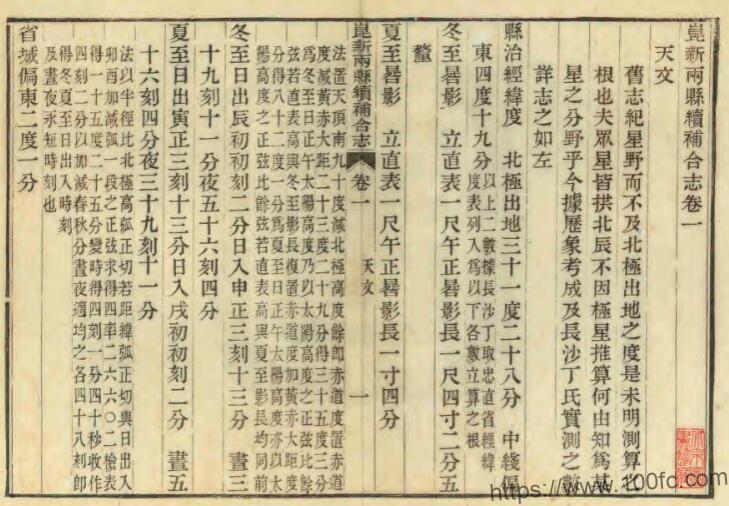 崑新兩縣續補合志卷一
天文
舊志紀星野而不及北極出地之度是未明測算之
根也夫眾星皆拱北辰不因極星推算何由知為某
星之分野乎今據歷象考成及長沙丁氏實測之數
詳志之如左
縣治經緯度 北極出地三十一度二十八分 中綫偏
東四度十九分以上二數據長沙丁取忠直省經緯
度表列入為以下各數立算之根
冬至晷影 立直表一尺午正晷影長一尺四寸二分五
釐
夏至晷影 立直表一尺午正晷影長一寸四分
法置天頂南九十度減北極高度餘卽赤道度置赤道
度減黃赤大距二十三度二十九分得三十五度三分
為冬至日午正太陽高度乃以太陽高度之正弦比餘
弦若直表高與冬至影長復置赤道度加黃赤大距度
分得八十二度一分為夏至日正午太陽高度亦以太
陽高度之正弦比餘弦若直表高與夏至影長均同前
崑新兩縣續補合志 卷一 天文 一
冬至日出辰初初刻二分日入申正三刻十三分 晝三
十九刻十一分夜五十六刻四分
夏至日出寅正三刻十三分日入戌初初刻二分 晝五
十六刻四分夜三十九刻十一分
法以半徑比北極高弧正切若距緯弧正切與日出入
卯酉加減弧一段之正弦求得四率二六六〇二檢表
得一十五度二十五分變時得四刻一分四十秒收作
四刻二分以加減春秋分晝夜適均之各四十八刻卽
得冬夏至日出入時刻
及晝夜永短時刻也
省城偏東二度一分
https://www.100fc.com